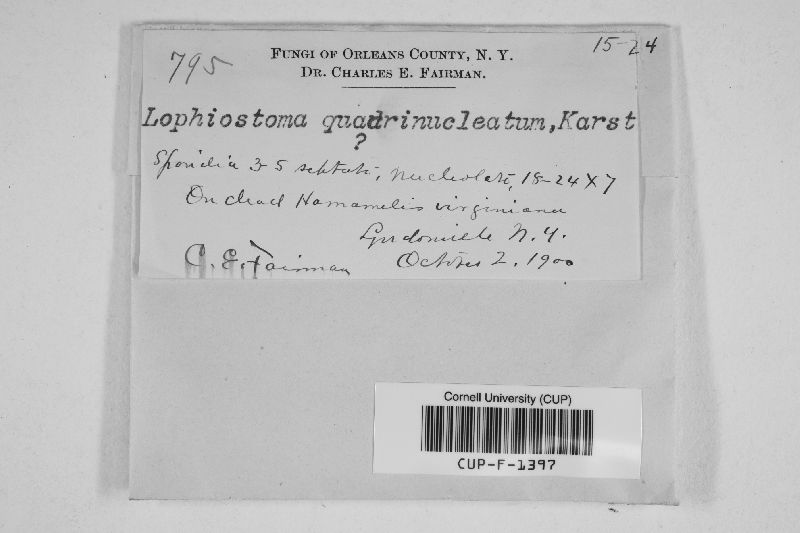 795
15-24
FUNGI OF ORLEANS COUNTY, N. Y.
DR. CHARLES E. FAIRMAN.
Lophiostoma quadrinucleatum, Karst
?
Sporidia 3-5 septate, nucleolate, 18-24 X 7
On dead Hamamelis virginiana
Lyndonville N. Y.
C. E. Fairman
October 2. 1900
Cornell University (CUP)
CUP-F-1397